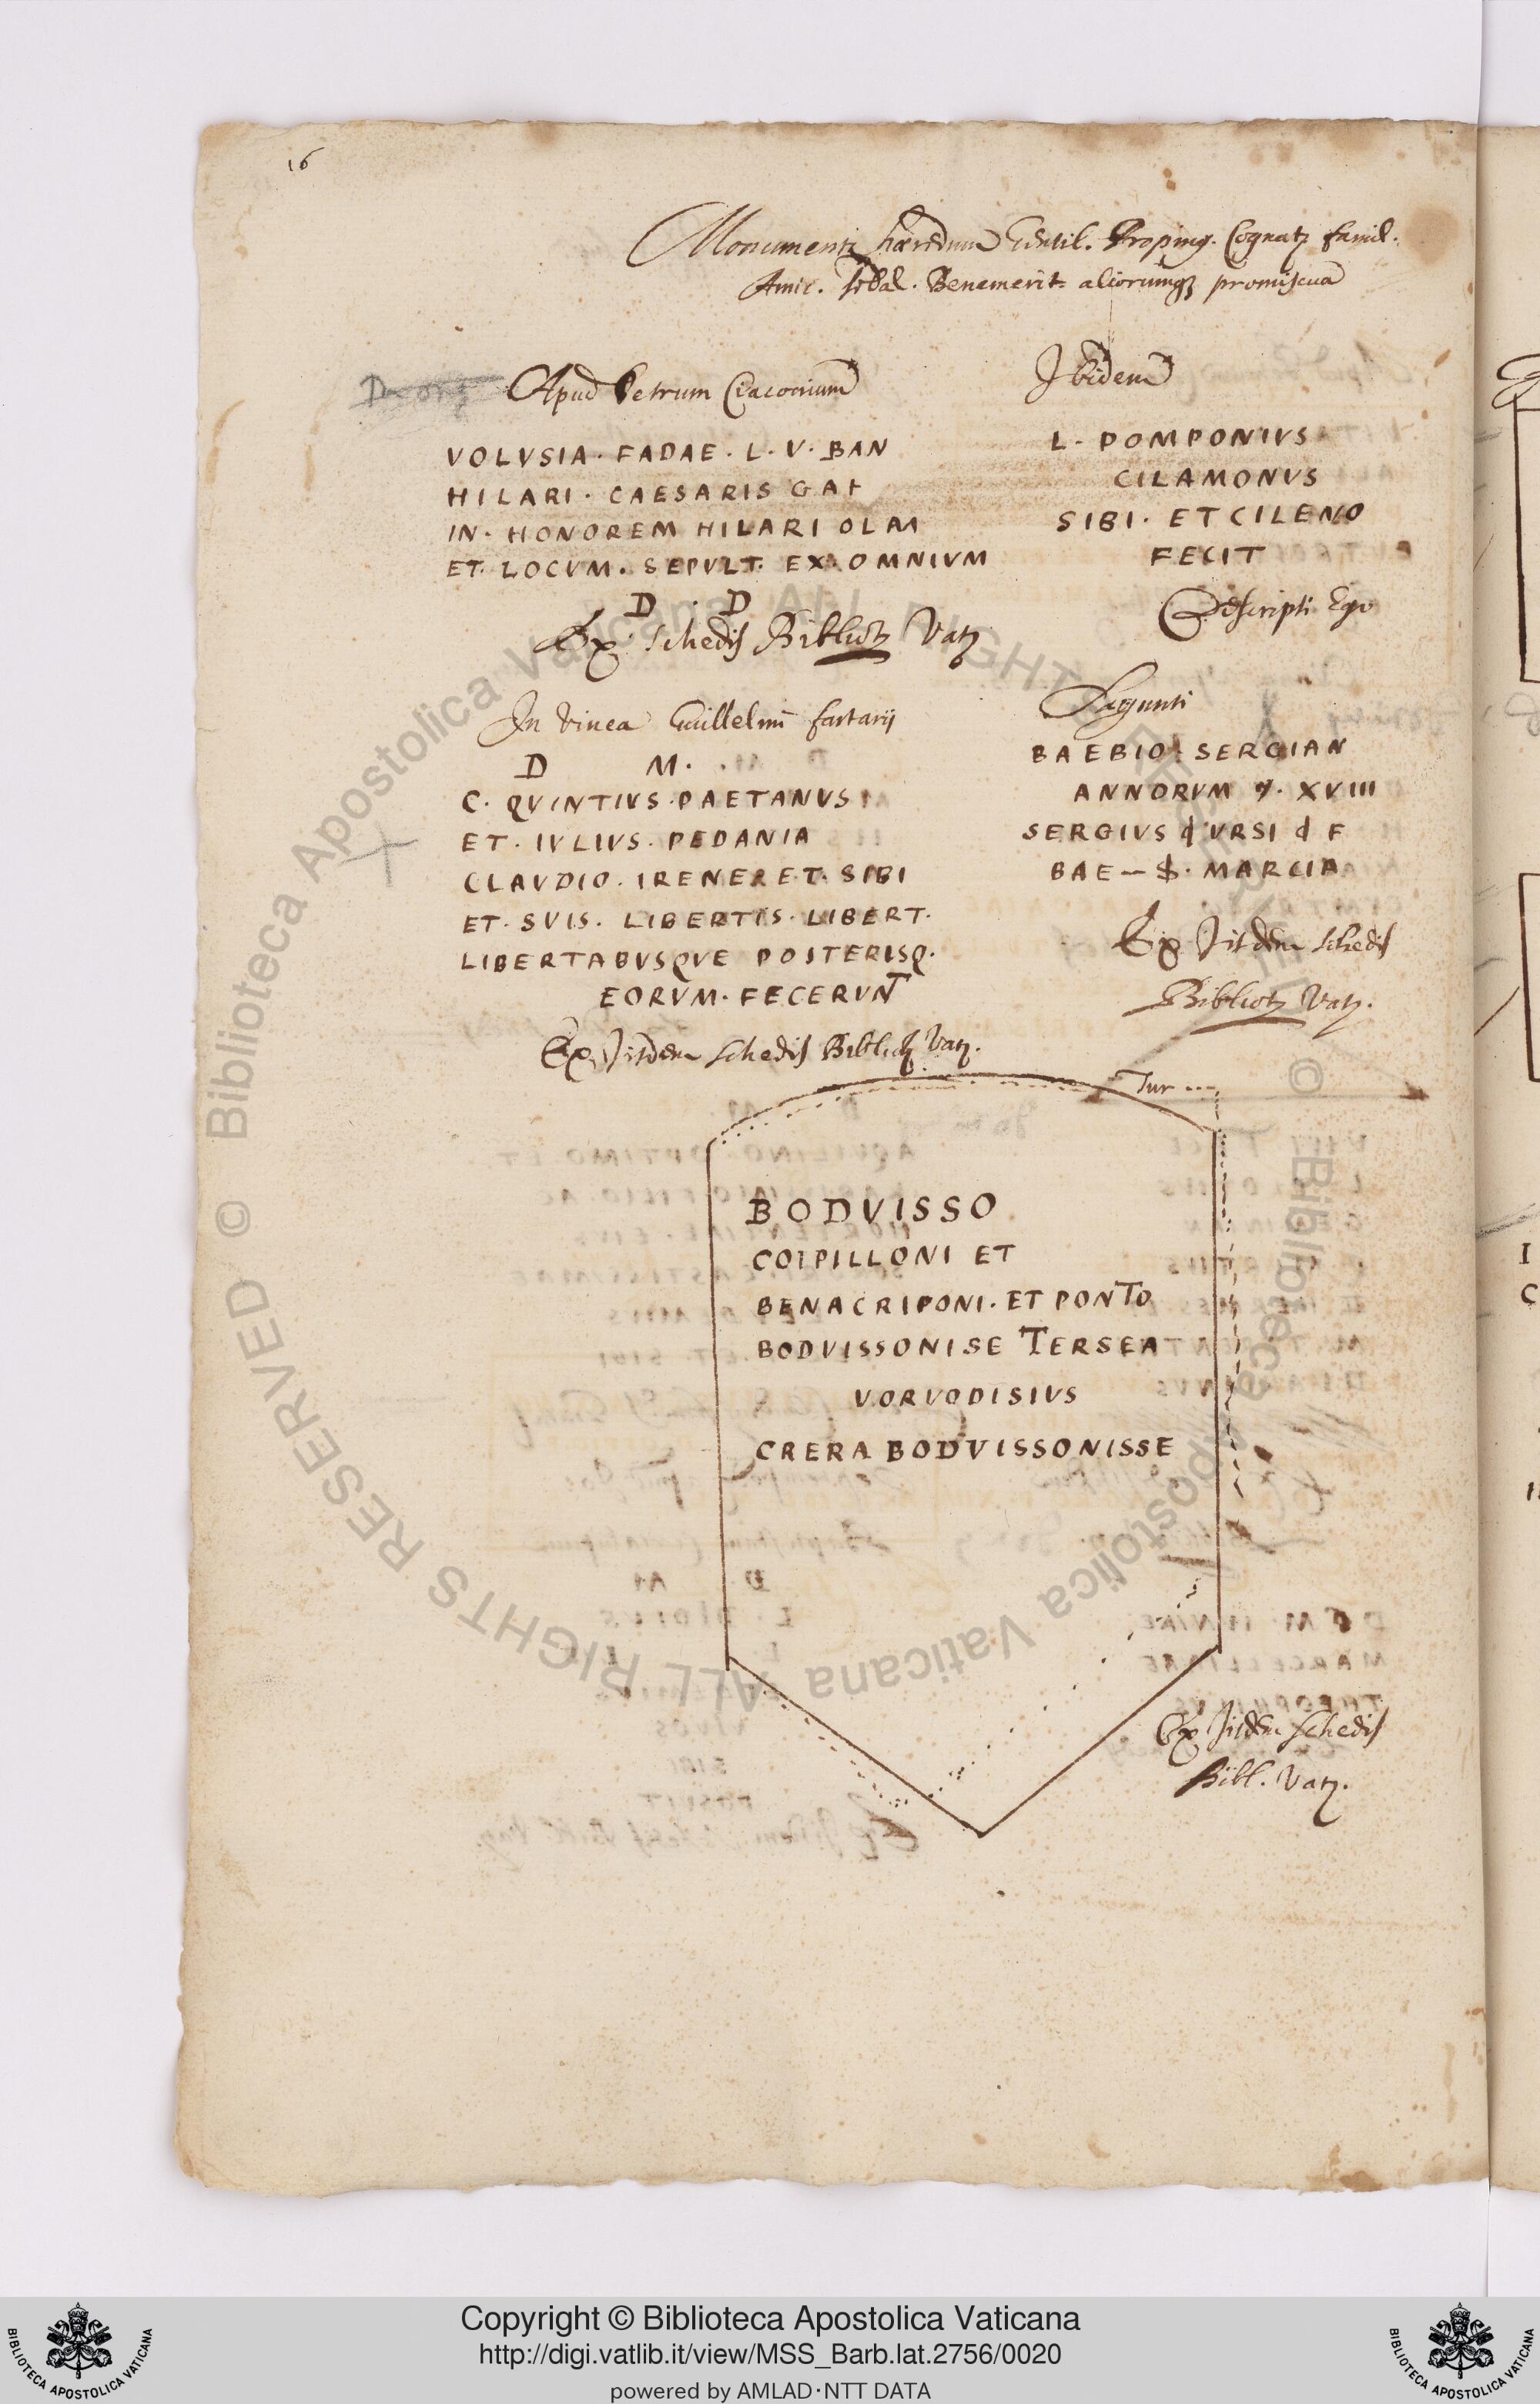 16
Monumenta hæredum Gentil. Propinq. Cognatꝫ famil.
Amic. Sodal. Benemerit. aliorumqꝫ promiscua
Apud Petrum Ciaconium
VOLVSIA · FADAE · L · V · BAN
HILARI · CAESARIS GAT
IN · HONOREM HILARI OLAM
ET · LOCVM · SEPVLT · EX · OMNIVM
D · D
Ex schedis Bibliotꝫ Vatꝫ
In Vinea Guillelmi fartarij
D M ·
C · QVINTIVS · PAETANVS
ET · IVLIVS · PEDANIA
CLAVDIO · IRENE · ET · SIBI
ET · SVIS · LIBERTIS · LIBERT ·
LIBERTABVSQVE POSTERISQ ·
EORVM · FECERVNT
Ex Iisdem schedis Bibliotꝫ Vatꝫ.
Ibidem
L · POMPONIVS
CILAMONVS
SIBI · ET CILENO
FECIT
Descripsi Ego
Sagunti
BAEBIO · SERGIAN
ANNORVM · XVIII
SERGIVS VRSI F
BAE — S · MARCIA
Ex Iisdem schedis
Bibliotꝫ Vatꝫ.
Tur ...
BODVISSO
COIPILLONI ET
BENACRIPONI · ET PONTO
BODVISSONISE TERSEA
VORVODISIVS
CRERA BODVISSONISSE
Ex Iisdem schedis
Bibl. Vatꝫ.
© Biblioteca Apostolica Vaticana ALL RIGHTS RESERVED
Copyright © Biblioteca Apostolica Vaticana
http://digi.vatlib.it/view/MSS_Barb.lat.2756/0020
powered by AMLAD·NTT DATA
BIBLIOTECA APOSTOLICA VATICANA
BIBLIOTECA APOSTOLICA VATICANA